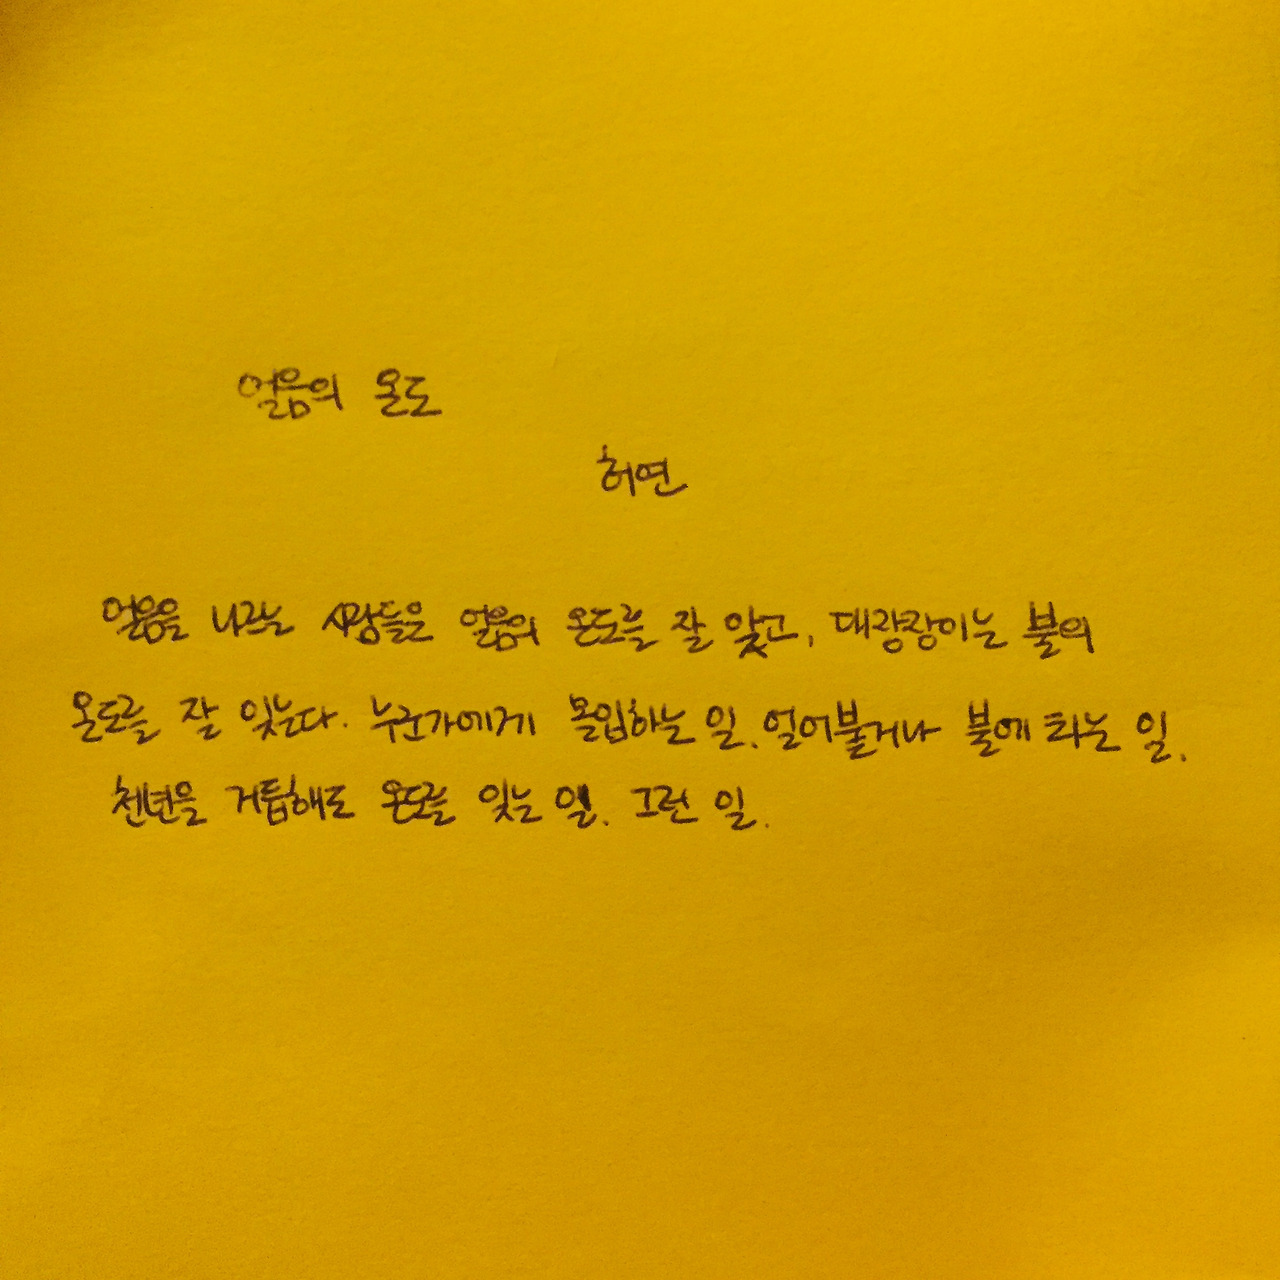 얼음의 온도
허연
얼음을 나르는 사람들은 얼음의 온도를 잘 잊고, 대장장이는 불의
온도를 잘 잊는다. 누군가에게 몰입하는 일. 얼어붙거나 불에 타는 일.
천년을 거듭해도 온도를 잊는 일. 그런 일.